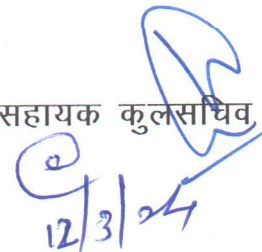 सहायक कुलसचिव
12/3/24